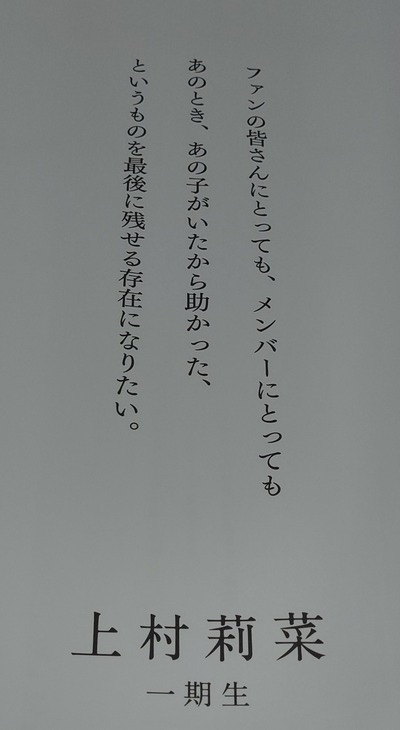 ファンの皆さんにとっても、メンバーにとっても
あのとき、あの子がいたから助かった、
というものを最後に残せる存在になりたい。
上村莉菜
一期生